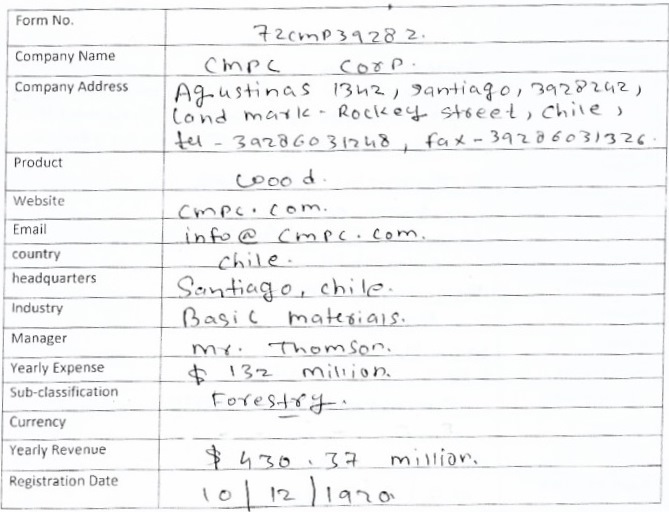 Form No.
72cmp39282.
Company Name
CMPC Corp.
Company Address
Agustinas 1342, Santiago, 3928242,
Land mark - Rockey street, Chile,
tel - 39286031248, fax - 39286031326.
Product
Wood.
Website
cmpc.com.
Email
info@cmpc.com.
country
Chile.
headquarters
Santiago, Chile.
Industry
Basic materials.
Manager
Mr. Thomson.
Yearly Expense
$ 132 million.
Sub-classification
Forestry.
Currency
Yearly Revenue
$ 430.37 million.
Registration Date
10/12/1920